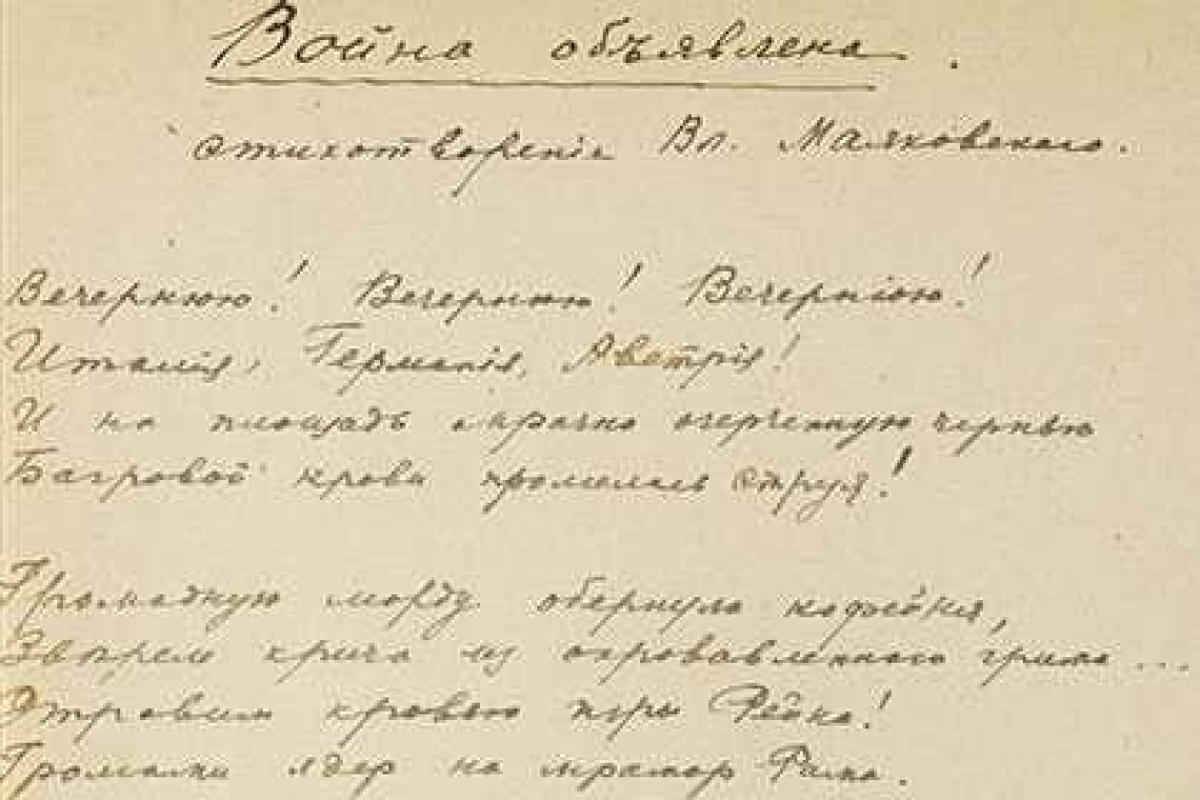 Война объявлена.
стихотворенiе Вл. Маяковского.
Вечернюю! Вечернюю! Вечернюю!
Италiя, Германiя, Австрiя!
И на площадь мрачно очерченную чернью
Багровой крови пролилась струя!
Громадную морду обернула кофейня,
Зверем крича из окровавленного грима...
Отравим кровью игры Рейна!
Громами ядер на мрамор Рима.